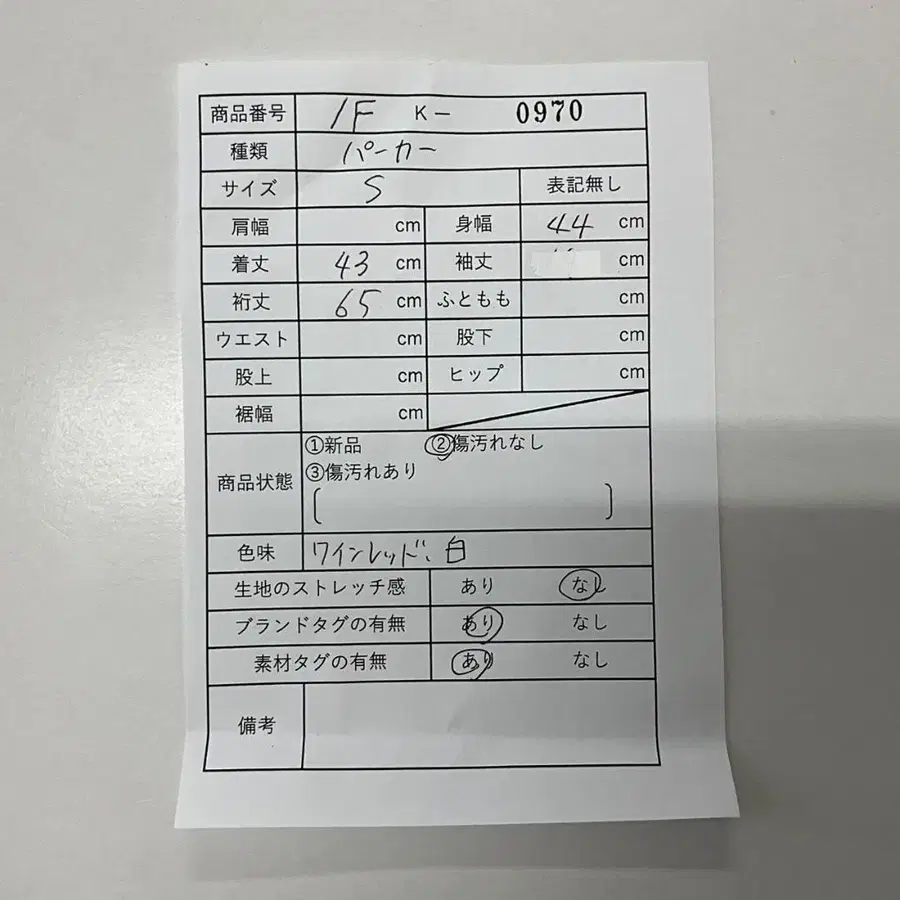 商品番号 1F K- 0970
種類 パーカー
サイズ S 表記無し
肩幅 cm 身幅 44 cm
着丈 43 cm 袖丈 cm
裄丈 65 cm ふともも cm
ウエスト cm 股下 cm
股上 cm ヒップ cm
裾幅 cm
商品状態 ①新品 ②傷汚れなし
③傷汚れあり
色味 ワインレッド、白
生地のストレッチ感 あり なし
ブランドタグの有無 あり なし
素材タグの有無 あり なし
備考